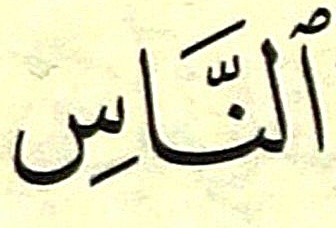 ٱلنَّاسِ